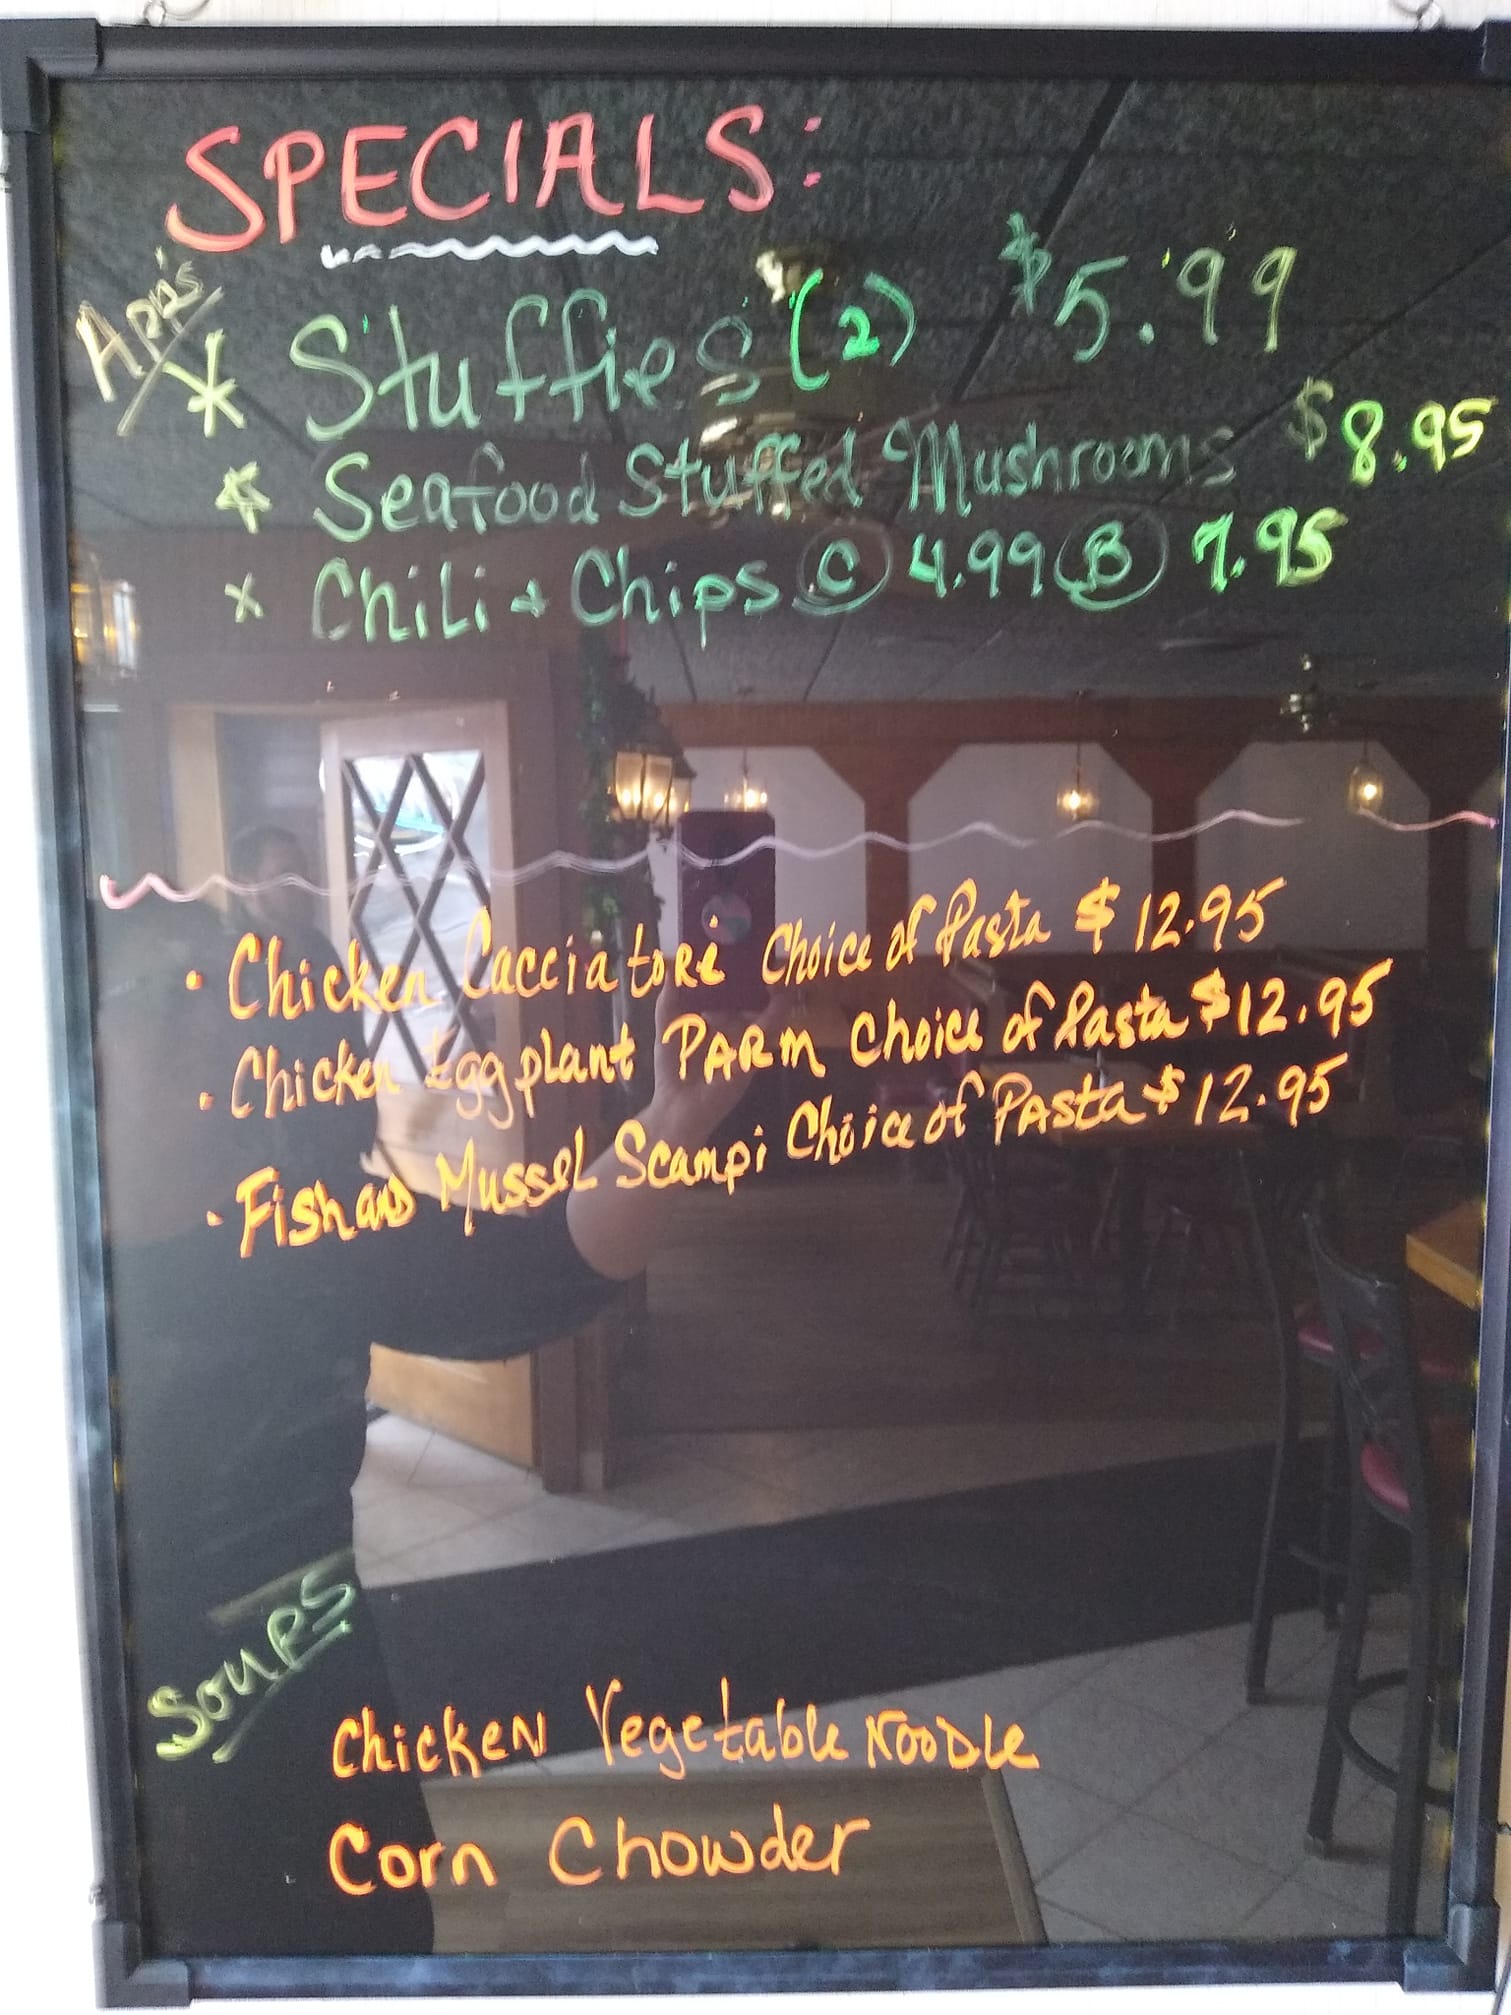 SPECIALS:
App's
* Stuffies (2) $5.99
* Seafood Stuffed Mushrooms $8.95
x Chili & Chips C 4.99 B 7.95
· Chicken Cacciatore Choice of Pasta $12.95
· Chicken Eggplant PARM Choice of Pasta $12.95
· Fish and Mussel Scampi Choice of Pasta $12.95
Soups
Chicken Vegetable Noodle
Corn Chowder